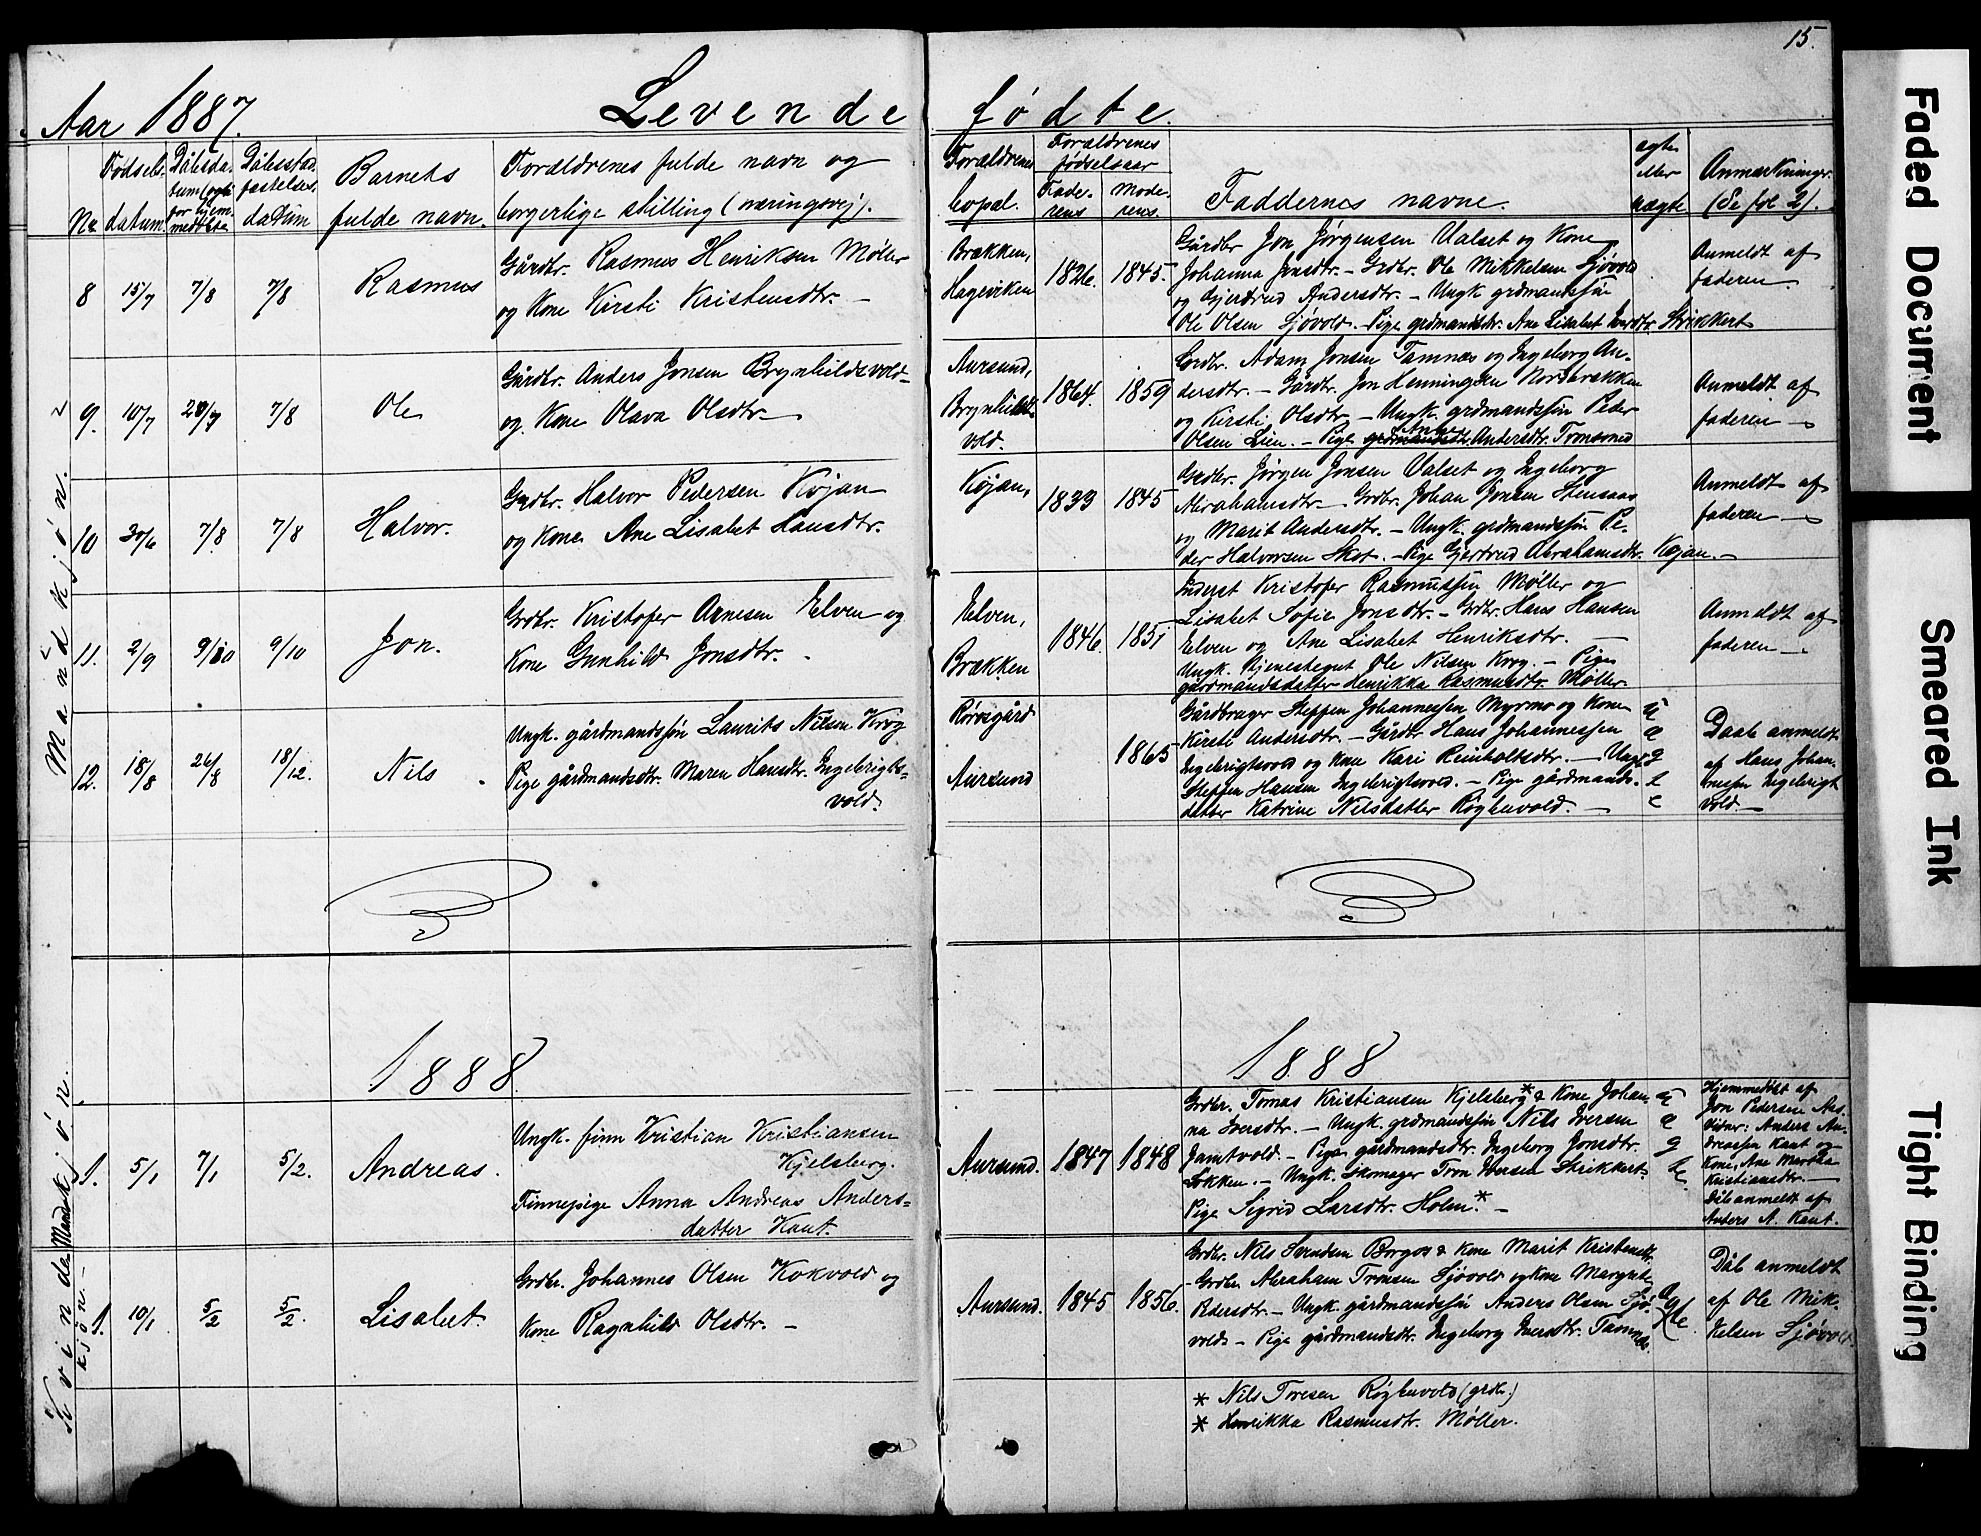 15.
Aar 1887.
Levende fødte.
No
Fødsels-
datum.
Dåbsda-
tum (også
for hjem-
medøbte
Dåbsstad-
festelses-
datum
Barnets
fulde navn.
Forældrenes fulde navn og
borgerlige stilling (næringsvej).
Forældrenes
bopæl.
Forældrenes
fødselsaar
Fade-
rens
Mode-
rens.
Faddernes navne.
ægte
eller
uægte
Anmærkninger.
(Se fol 2).
Mandkjön.
8
15/7
7/8
7/8
Rasmus
Gårdbr. Rasmus Henriksen Møller
og Kone Kirsti Kristensdtr. —
Brækken,
Hagevirken
1826.
1845.
Gårdbr Jon Jørgensen Valset og Kone
Johanna Jonsdtr. — Grdbr. Ole Mikkelsen Sjøvold
og Gjertrud Andersdtr. — Ungk grdmandssön
Ole Olsen Sjøvold. — Pige grdmandsdtr. Ane Lisabet Iversdtr. Strikkert
Anmeldt af
faderen.
9.
10/7
7/8
Ole
Gårdbr. Anders Jonsen Brynhildsvold
og Kone Olava Olsdtr.
Aursund,
Brynhilds
vold.
1864.
1859
Grdbr. Adam Jonsen Tamnes og Ingeborg An-
dersdtr. — Gårdbr. Jon Henningsen Nordbrækken
og Kirsti Olsdtr — Ungk. grdmandssön Peder
Olsen Lien. — Pige Anne Andersdtr. Tronsoned
Anmeldt af
faderen —
10
30/6
7/8
7/8
Halvor.
Grdbr. Halvor Pedersen Køjan
og Kone Ane Lisabet Hansdtr.
Køjan,
1839
1845
Grdbr. Jørgen Jonsen Valset og Ingeborg
Abrahamsdtr — Grdbr. Johan Jonsen Stensaas
og Marit Andersdtr. — Ungk. grdmandssön Pe-
der Halvorsen Skot. — Pige Gjertrud Abrahamsdtr. Køjan. —
Anmeldt af
faderen —
11.
2/9
9/10
9/10
Jon.
Grdbr. Kristofer Arnesen Elven og
Kone Gunhild Jonsdtr.
Elven,
Brækken
1846.
1851
Inderst Kristofer Rasmussen Møller og
Lisabet Sofie Jonsdtr. — Grdbr. Hans Hansen
Elven og Ane Lisabet Henriksdtr. —
Ungk. tjenestegut Ole Nilsen Krog. — Pige
gårdmandsdatter Henrikka Rasmusdtr. Møller
Anmeldt af
faderen —
12.
18/8
26/8
18/12.
Nils
Ungk. gårdmandssön Laurits Nilsen Krog
Pige gårdmandsdtr. Maren Hansdtr. Ingebrigts-
vold.
Rörosgård
Aursund
1865
Gårdbruger Steffen Johannessen Myrmo og Kone
Kirsti Andersdtr. — Gårdbr. Hans Johannessen
Ingebrigtsvold og Kone Kari Reinholtsdtr. — Ungk
Steffen Hansen Ingebrigtsvold. — Pige gårdmands-
datter Katrine Nilsdatter Røghuvold. —
uægte
Daab anmeldt
af Hans Johan-
nessen Ingebrigt
vold. —
1888
1888
Kvindekjön.
Mandk
kjön. —
1.
5/1
7/1
5/2.
Andreas.
Ungk. finn Kristian Kristiansen
Kjelsberg.
Finnepige Anna Andreas Anders-
datter Kant.
Aursund.
1847
1848
Grdbr. Tomas Kristiansen Kjelsberg* & Kone Johan-
na Iversdtr. — Ungk. grdmandssön Nils Iversen
Jamtvold. — Pige gårdmandsdtr. Ingeborg Jonsdtr.
Lökken. — Ungk. Skomager Tron Iversen Strikkert.
Pige Sigrid Larsdtr. Holen.* —
uægte
Hjemmedöbt af
Jon Pedersen Aas.
Vidner: Anders An-
dreassen Kant og
Kone, Ane Martha
Kristiansdtr. —
Dåb anmeldt af
Anders A. Kant.
1.
10/1
5/2
5/2.
Lisabet.
Grdbr. Johannes Olsen Kokvold og
Kone Ragnhild Olsdtr. —
Aursund.
1845
1856.
Grdbr. Nils Svendsen Borgos & Kone Marit Kristensdtr.
Grdbr Abraham Tronsen Sjøvold og Kone Margrete
Pedersdtr. — Ungk. gårdmandssön Anders Olsen Sjø-
vold — Pige gårdmandsdtr. Ingeborg Iversdtr. Tamnes.
Ægte.
Dåb anmeldt
af Ole Mik-
kelsen Sjøvold.
* Nils Toresen Røghuvold (grdbr.)
* Henrikka Rasmusdtr. Møller.
Faded Document
Smeared Ink
Tight Binding